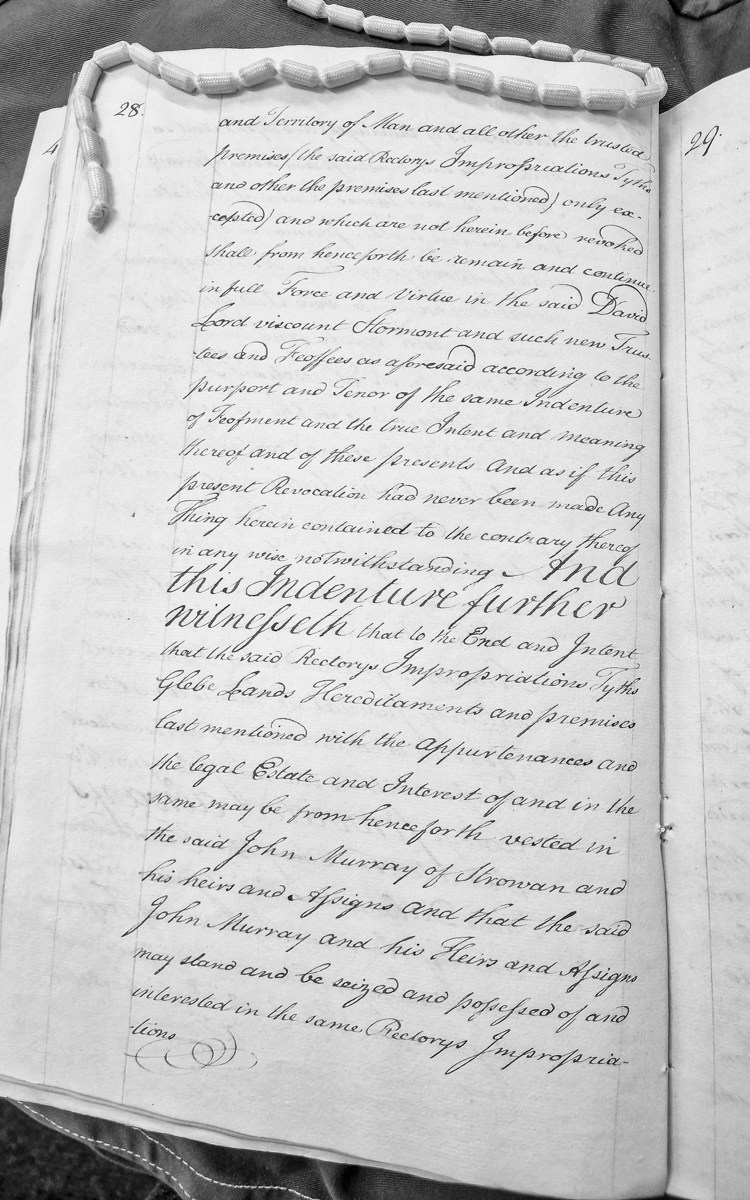 28.
and Territory of Man and all other the trusted
premises (the said Rectorys Impropriations Tyths
and other the premises last mentioned) only ex-
-cepted) and which are not herein before revoked
shall from henceforth be remain and continue
in full Force and Virtue in the said David
Lord viscount Stormont and such new Trus-
-tees and Feoffees as aforesaid according to the
purport and Tenor of the same Indenture
of Feofment and the true Intent and meaning
thereof and of these presents And as if this
present Revocation had never been made Any
Thing herein contained to the contrary thereof
in any wise notwithstanding And
this Indenture further
witnesseth that to the End and Intent
that the said Rectorys Impropriations Tyths
Glebe Lands Hereditaments and premises
last mentioned with the Appurtenances and
the legal Estate and Interest of and in the
same may be from henceforth vested in
the said John Murray of Strowan and
his heirs and Assigns And that the said
John Murray and his Heirs and Assigns
may stand and be seized and possessed of and
interested in the same Rectorys Impropria-
-tions
4
29.